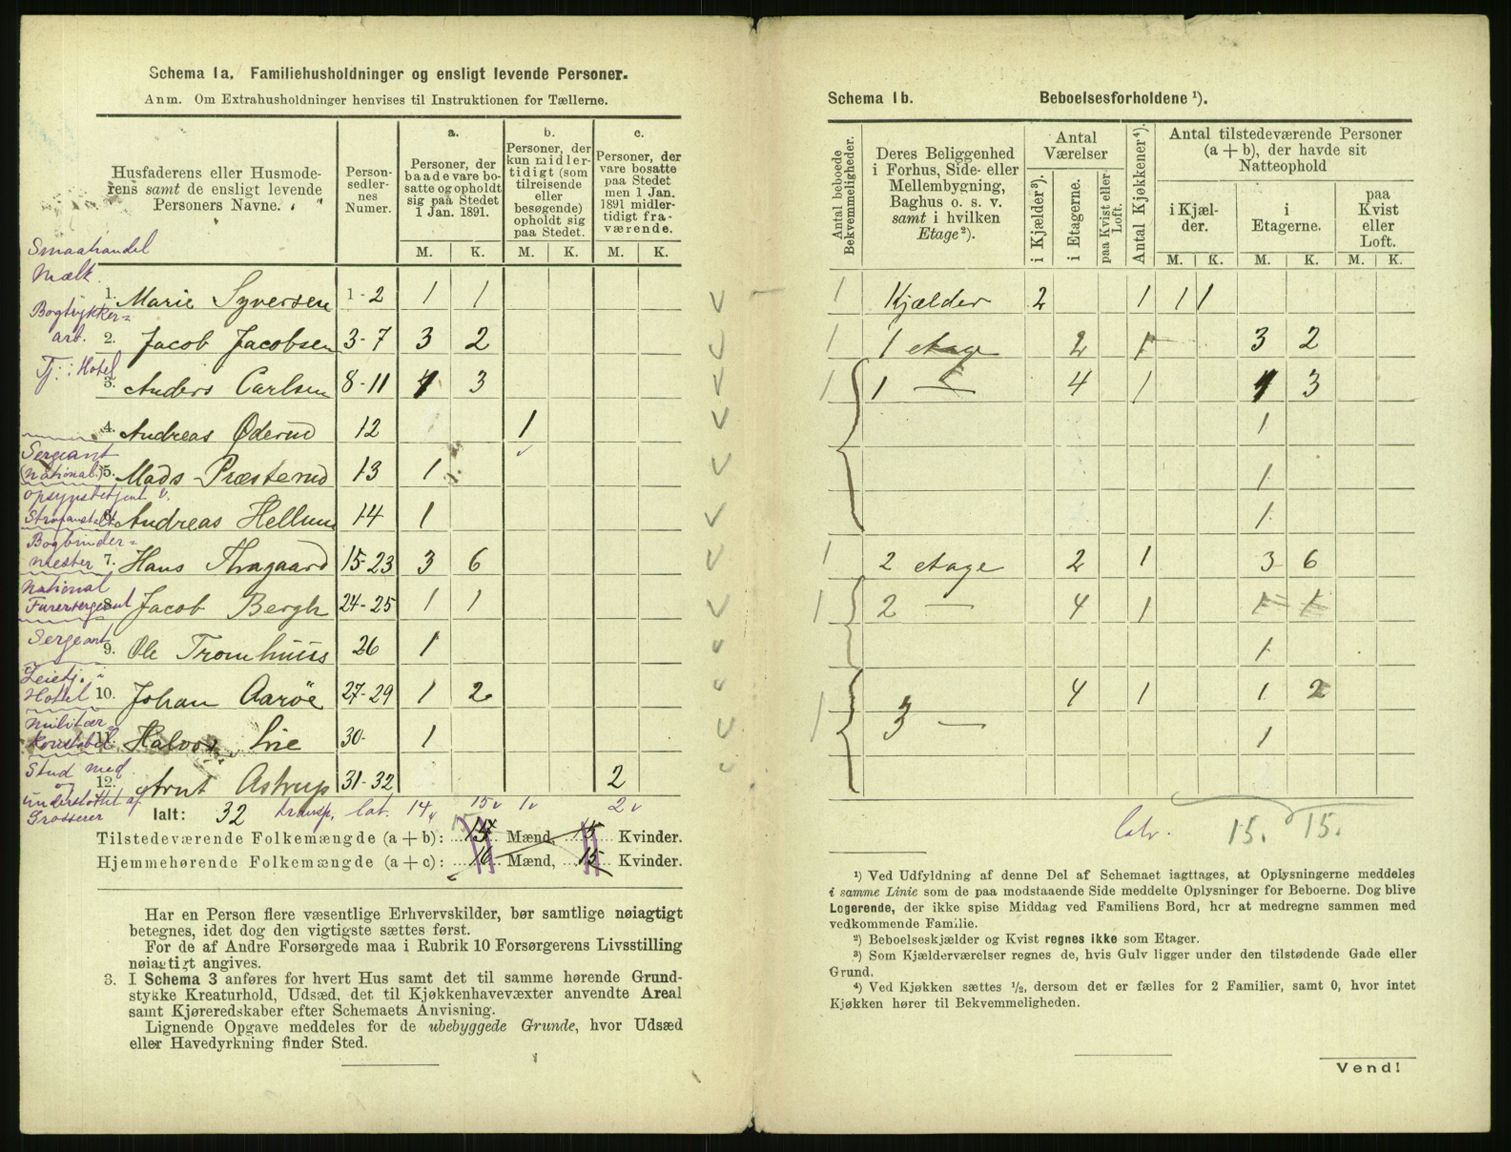 Schema 1a. Familiehusholdninger og ensligt levende Personer.
Anm. Om Extrahusholdninger henvises til Instruktionen for Tællerne.
Husfaderens eller Husmoderens samt de ensligt levende Personers Navne.
Personsedlernes Numer.
a. Personer, der baade vare bosatte og opholdt sig paa Stedet 1 Jan. 1891.
b. Personer, der kun midlertidigt (som tilreisende eller besøgende) opholdt sig paa Stedet.
c. Personer, der vare bosatte paa Stedet men 1 Jan. 1891 midlertidigt fraværende.
M. K. M. K. M. K.
Smaahandel
Mælk
1. Marie Syversen 1-2 1 1
Bogtrykker=
arb.
2. Jacob Jacobsen 3-7 3 2
Tj. i Hotel
3. Anders Carlsen 8-11 1 3
4. Andreas Øderud 12 1
Sergeant
(National.)
5. Mads Præsterud 13 1
opsynsbetjent v.
Strafanstalt
6. Andreas Hellum 14 1
Bogbinder=
mester
7. Hans Thragaard 15-23 3 6
National
Furersergeant
8. Jacob Bergh 24-25 1 1
Sergeant
9. Ole Tromhuus 26 1
Leietj. i
Hotel
10. Johan Aarøe 27-29 1 2
Militær
Konstabel
11. Halvor Lie 30- 1
Stud med
og
12. Arnt Astrup 31-32 2
understøttet af
Grosserer
Ialt: 32 transp. lat. 14 15 1 2
Tilstedeværende Folkemængde (a + b): 15 Mænd, 15 Kvinder.
Hjemmehørende Folkemængde (a + c): 16 Mænd, 15 Kvinder.
Har en Person flere væsentlige Erhvervskilder, bør samtlige nøiagtigt
betegnes, idet dog den vigtigste sættes først.
For de af Andre Forsørgede maa i Rubrik 10 Forsørgerens Livsstilling
nøiagtigt angives.
3. I Schema 3 anføres for hvert Hus samt det til samme hørende Grund-
stykke Kreaturhold, Udsæd, det til Kjøkkenhavevæxter anvendte Areal
samt Kjøreredskaber efter Schemaets Anvisning.
Lignende Opgave meddeles for de ubebyggede Grunde, hvor Udsæd
eller Havedyrkning finder Sted.
Schema 1b. Beboelsesforholdene ¹).
Antal beboede Bekvemmeligheder.
Deres Beliggenhed i Forhus, Side- eller Mellembygning, Baghus o. s. v. samt i hvilken Etage²).
Antal Værelser
i Kjælder³).
i Etagerne.
paa Kvist eller Loft.
Antal Kjøkkener⁴).
Antal tilstedeværende Personer (a + b), der havde sit Natteophold
i Kjælder.
i Etagerne.
paa Kvist eller Loft.
M. K. M. K. M. K.
1 Kjælder 2 1 1 1
1 1 etage 2 1 3 2
1 1 — 4 1 1 3
1
1
1
1 2 etage 2 1 3 6
1 2 — 4 1 1 1
1
1 3 — 4 1 1 2
1
lat. 15. 15.
¹) Ved Udfyldning af denne Del af Schemaet iagttages, at Oplysningerne meddeles
i samme Linie som de paa modstaaende Side meddelte Oplysninger for Beboerne. Dog blive
Logerende, der ikke spise Middag ved Familiens Bord, her at medregne sammen med
vedkommende Familie.
²) Beboelseskjælder og Kvist regnes ikke som Etager.
³) Som Kjælderværelser regnes de, hvis Gulv ligger under den tilstødende Gade eller
Grund.
⁴) Ved Kjøkken sættes ½, dersom det er fælles for 2 Familier, samt 0, hvor intet
Kjøkken hører til Bekvemmeligheden.
Vend!